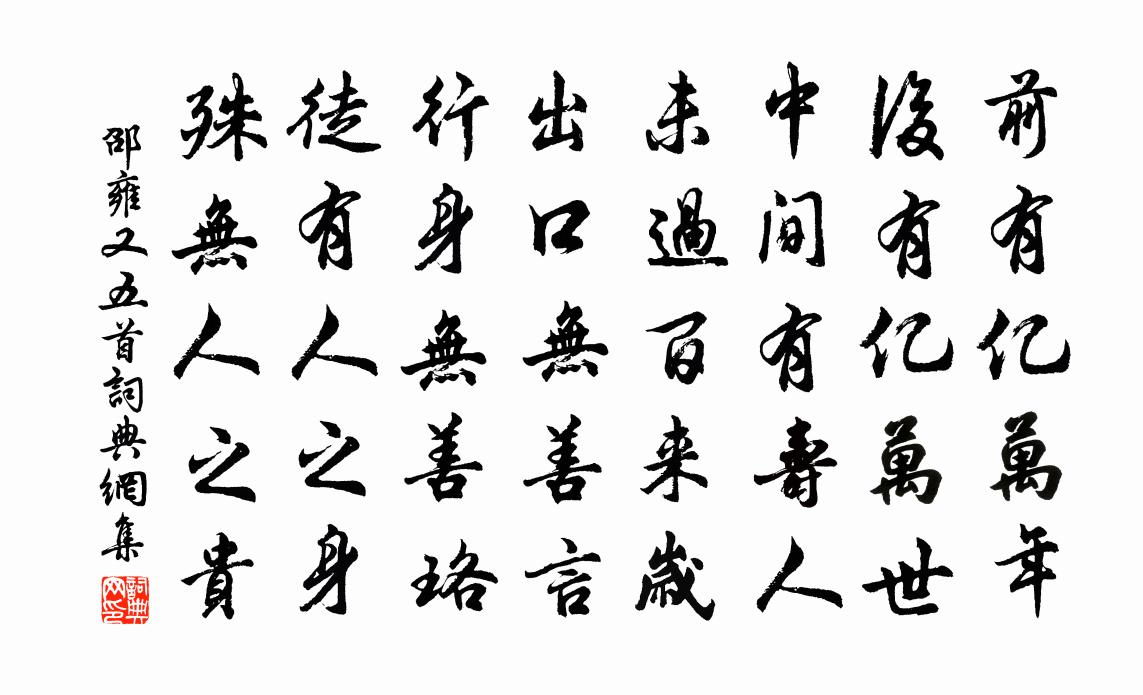 前有亿萬年
後有亿萬世
中間有壽人
未過百来歳
出口無善言
行身無善珞
徒有人之身
殊無人之貴
邵雍又五首詞典網集
詞典网印